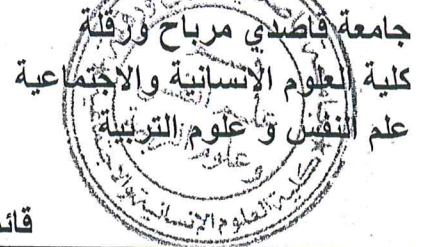 جامعة قاصدي مرباح ورقلة
كلية العلوم الإنسانية والاجتماعية
علم النفس و علوم التربية
كلية العلوم الإنسانية و